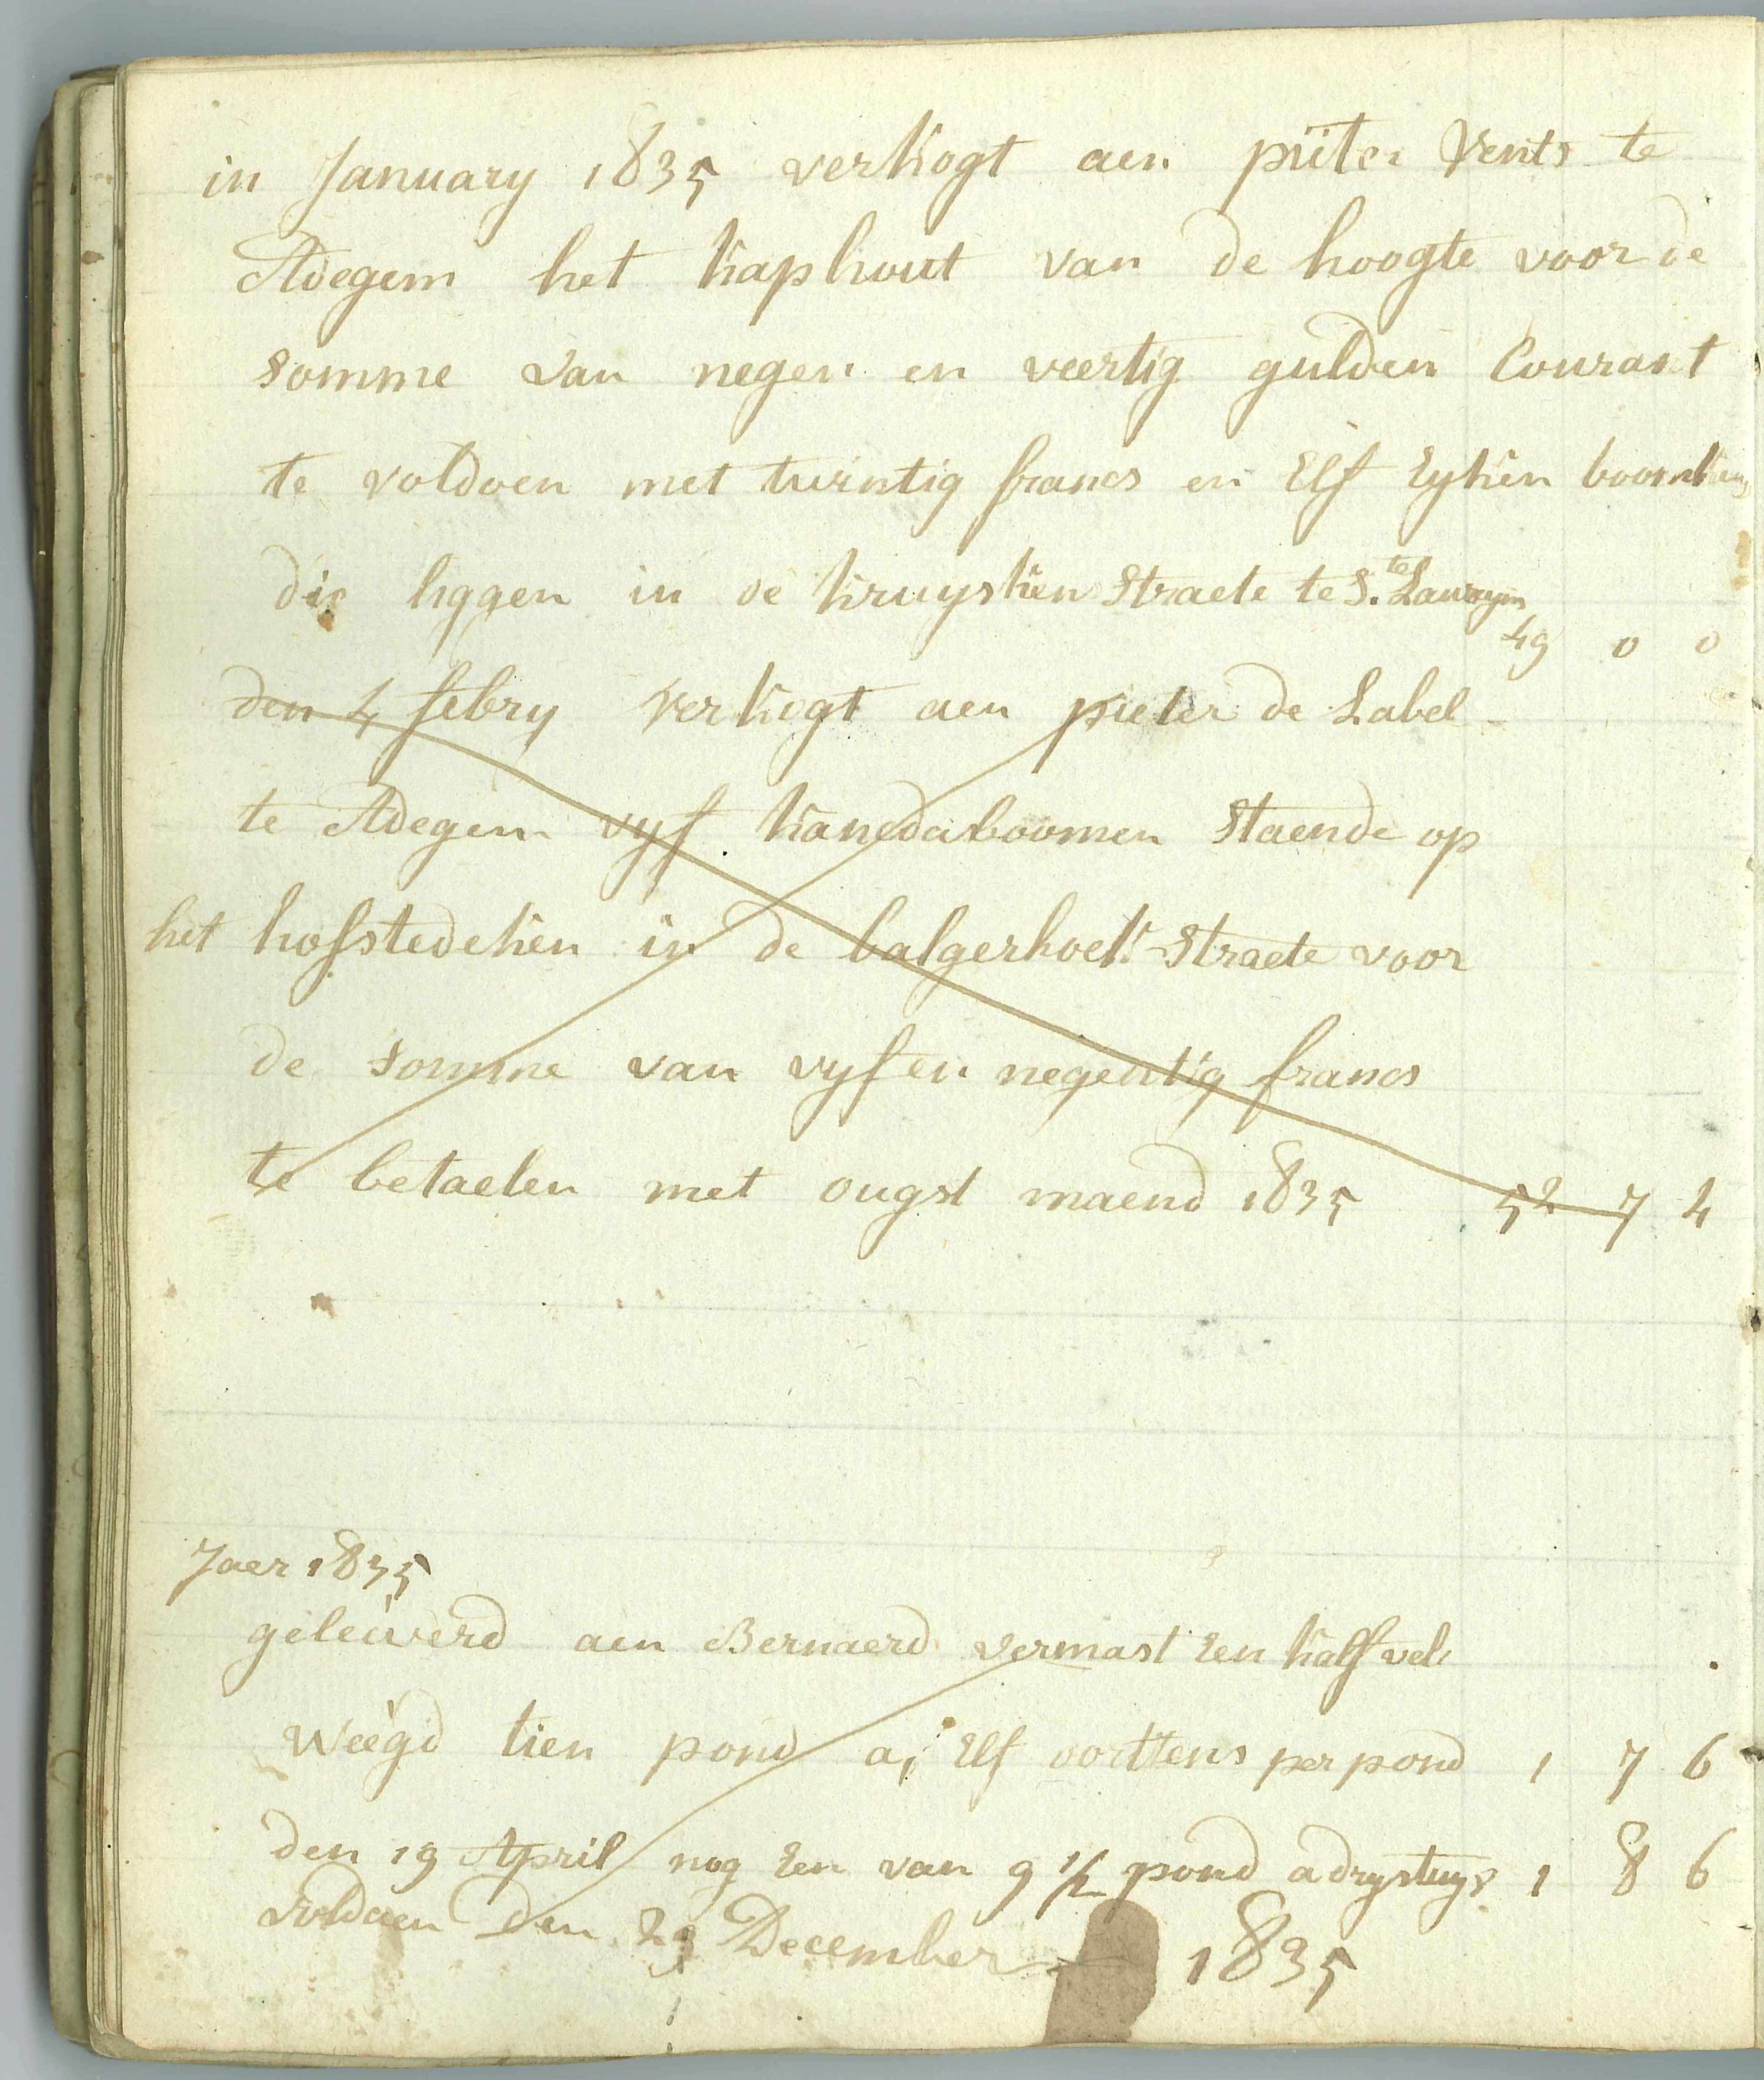 in January 1835 verkogt aen pieter Vents te
Adegem het kaphout van de hoogte voor de
somme van negen en veertig gulden Courant
te voldoen met twintig francs en Elf Eyken boomken
die liggen in de kruysken straete te S.te Laureyns
49 0 0
den 4 febry verkogt aen pieter de Label
te Adegem vyf kanedaboomen staende op
het hofstedeken in de balgerhoek straete voor
de somme van vyf en negentig francs
te betaelen met ougst maend 1835 52 7 4
Jaer 1835
geleiverd aen Bernaerd vermast Een kalf vel
Weegd tien pond a Elf oorttens per pond 1 7 6
den 19 April nog Een van 9 1/2 pond a dry stuys 1 8 6
voldaen den 29 December 1835